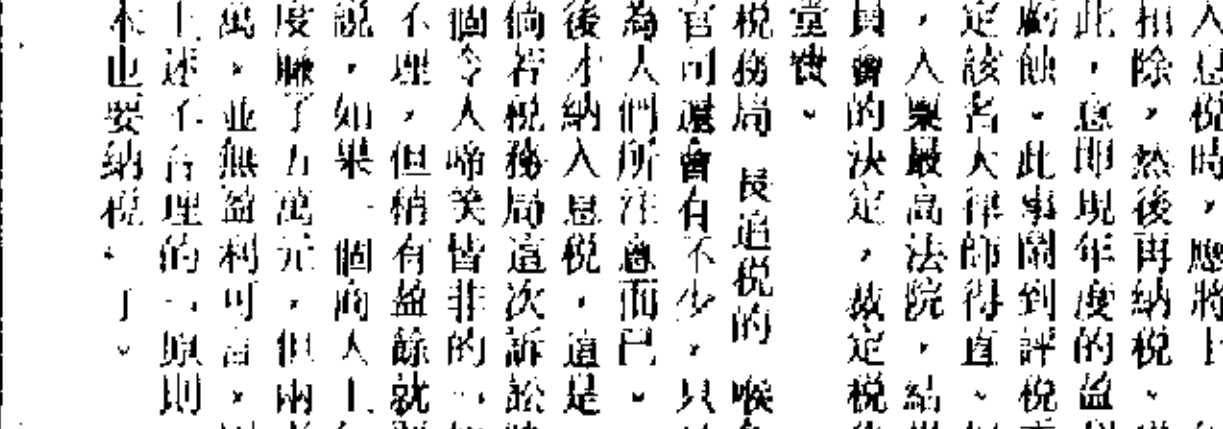 入息税時，應將上
扣除，然後再納税。
此，意即現年度的盈
虧蝕。此事鬧到評税
定該名大律師得直。
，入稟最高法院，結
員會的決定，故定税
童喪。
税務局長追税的喉
官司還會有不少，只
為人們所注意而已。
後才納入息税，這是
倘若税務局這次訴訟
個令人啼笑皆非的一
不理，但稍有盈餘就
説，如果一個商人上
度賺了五萬元，但兩
萬，並無盈利可言，
上述不合理的一原則
本也要納税。了。